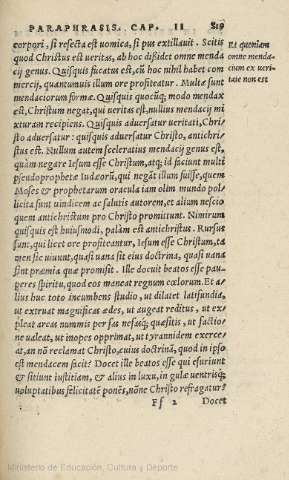 PARAPHRASIS. CAP. II 819
corpori, si resecta est uomica, si pus extillauit. Scitis
quod Christus est ueritas, ab hoc dissidet omne menda
cij genus. Quisquis fucatus est, cū hoc nihil habet com
mercij, quantumuis illum ore profiteatur. Multæ sunt
mendaciorum formæ. Quisquis quocūq; modo mendax
est, Christum negat, qui ueritas est, nullius mendacij mi
xturam recipiens. Quisquis aduersatur ueritati, Chri⸗
sto aduersatur: quisquis aduersatur Christo, antichri⸗
stus est. Nullum autem sceleratius mendacij genus est,
quàm negare Iesum esse Christum, atq; id faciunt multi
pseudoprophetæ Iudæorū, qui negāt illum fuisse, quem
Moses & prophetarum oracula iam olim mundo pol⸗
licita sunt uindicem ac salutis autorem, et alium nescio
quem antichristum pro Christo promittunt. Nimirum
quisquis est huiusmodi, palàm est antichristus. Rursus
sunt, qui licet ore profiteantur, Iesum esse Christum, ta
men sic uiuunt, quasi uana sit eius doctrina, quasi uana
sint præmia quæ promisit. Ille docuit beatos esse pau⸗
peres spiritu, quod eos maneat regnum cœlorum. Et a⸗
lius huc toto incumbens studio, ut dilatet latifundia,
ut extruat magnificas ædes, ut augeat reditus, ut ex⸗
pleat arcas nummis per fas nefasq; quæsitis, ut factio⸗
ne ualeat, ut inopes opprimat, ut tyrannidem exerce⸗
at, an nō reclamat Christo, cuius doctrinā, quod in ipso
est mendacem facit? Docet ille beatos esse qui esuriunt
& sitiunt iustitiam, & alius in luxu, in gulæ uentrisq;
uoluptatibus felicitatē ponēs, nōne Christo refragatur?
Ff 2 Docet
Et quoniam
omne menda⸗
cium ex ueri⸗
tate non est
Ministerio de Educación, Cultura y Deporte